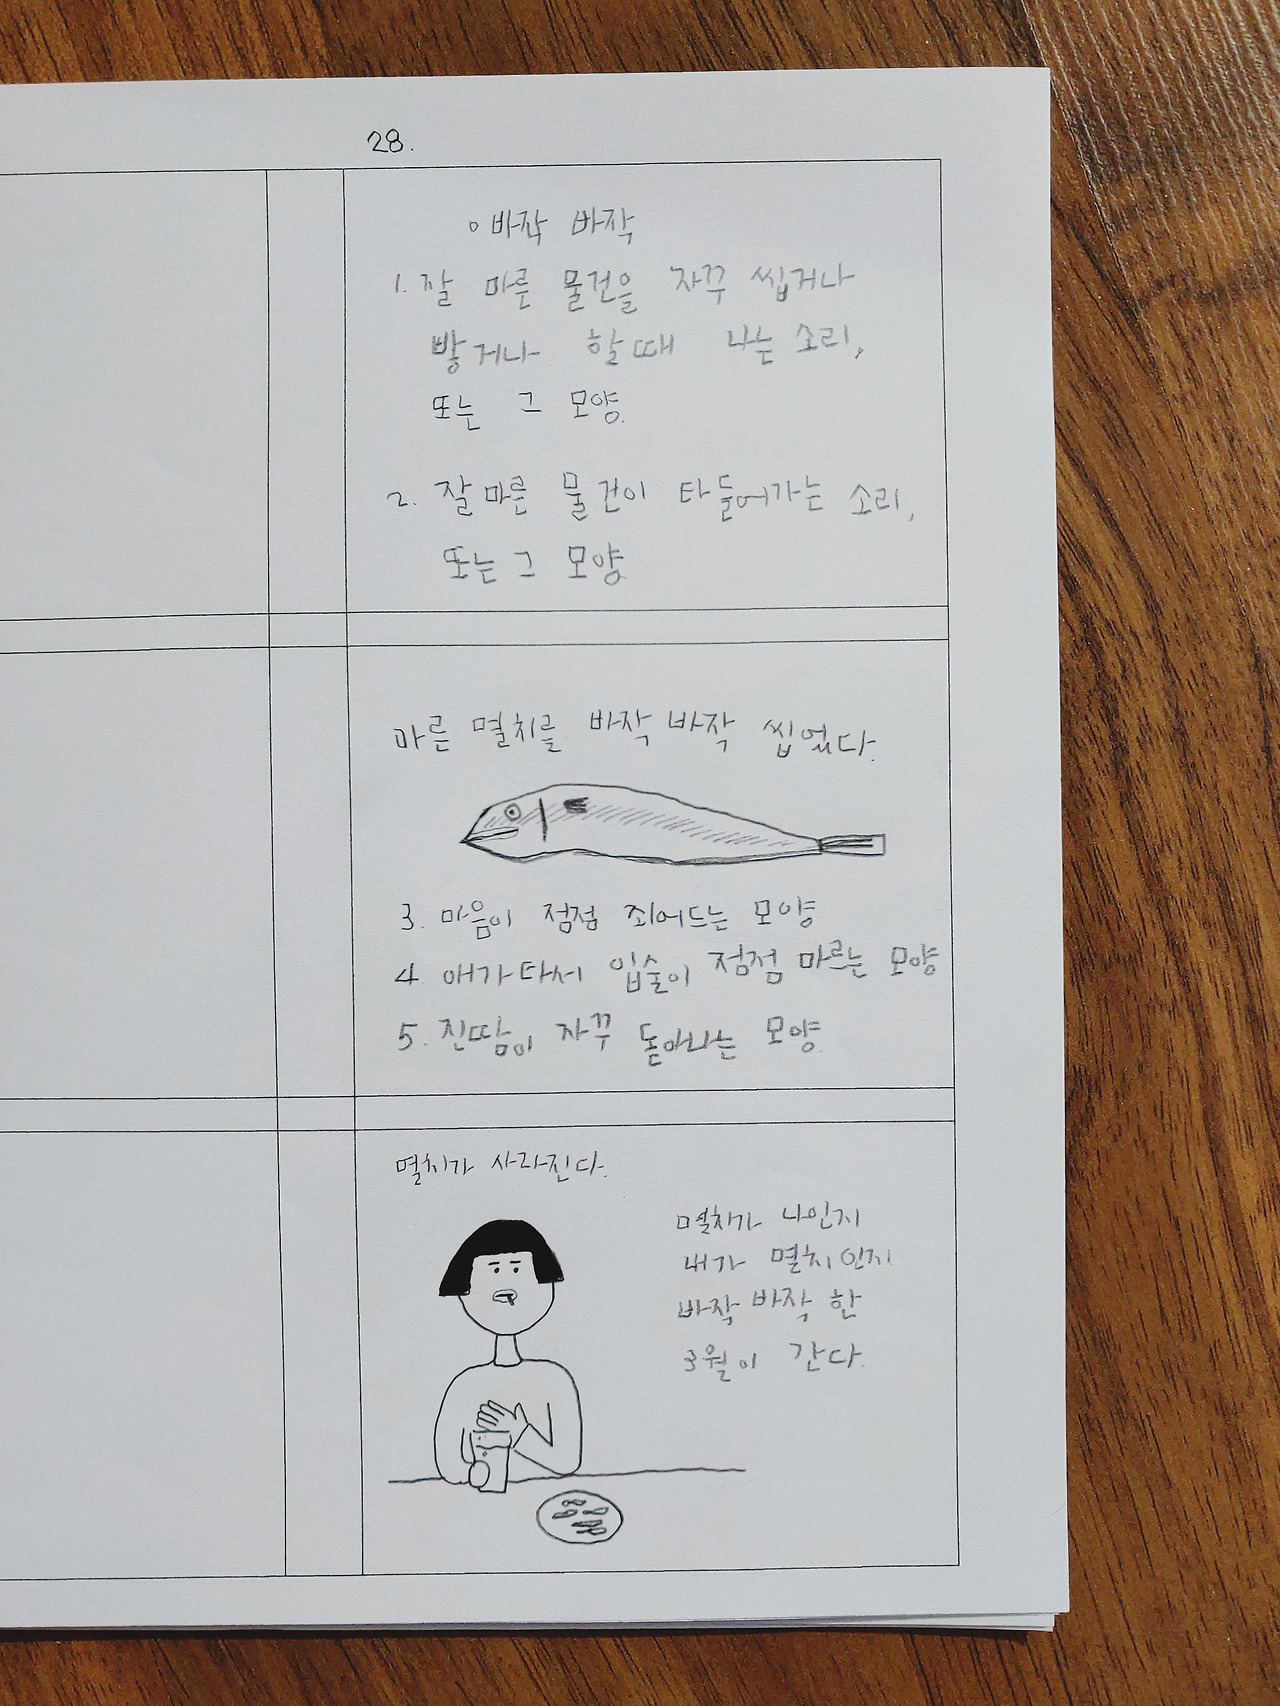 28.
◦ 바작 바작
1. 잘 마른 물건을 자꾸 씹거나
빻거나 할때 나는 소리,
또는 그 모양.
2. 잘 마른 물건이 타들어가는 소리,
또는 그 모양
마른 멸치를 바작 바작 씹었다.
3. 마음이 점점 죄어드는 모양
4 애가타서 입술이 점점 마르는 모양
5. 진땀이 자꾸 돋아나는 모양.
멸치가 사라진다.
멸치가 나인지
내가 멸치인지
바작 바작 한
3월이 간다.